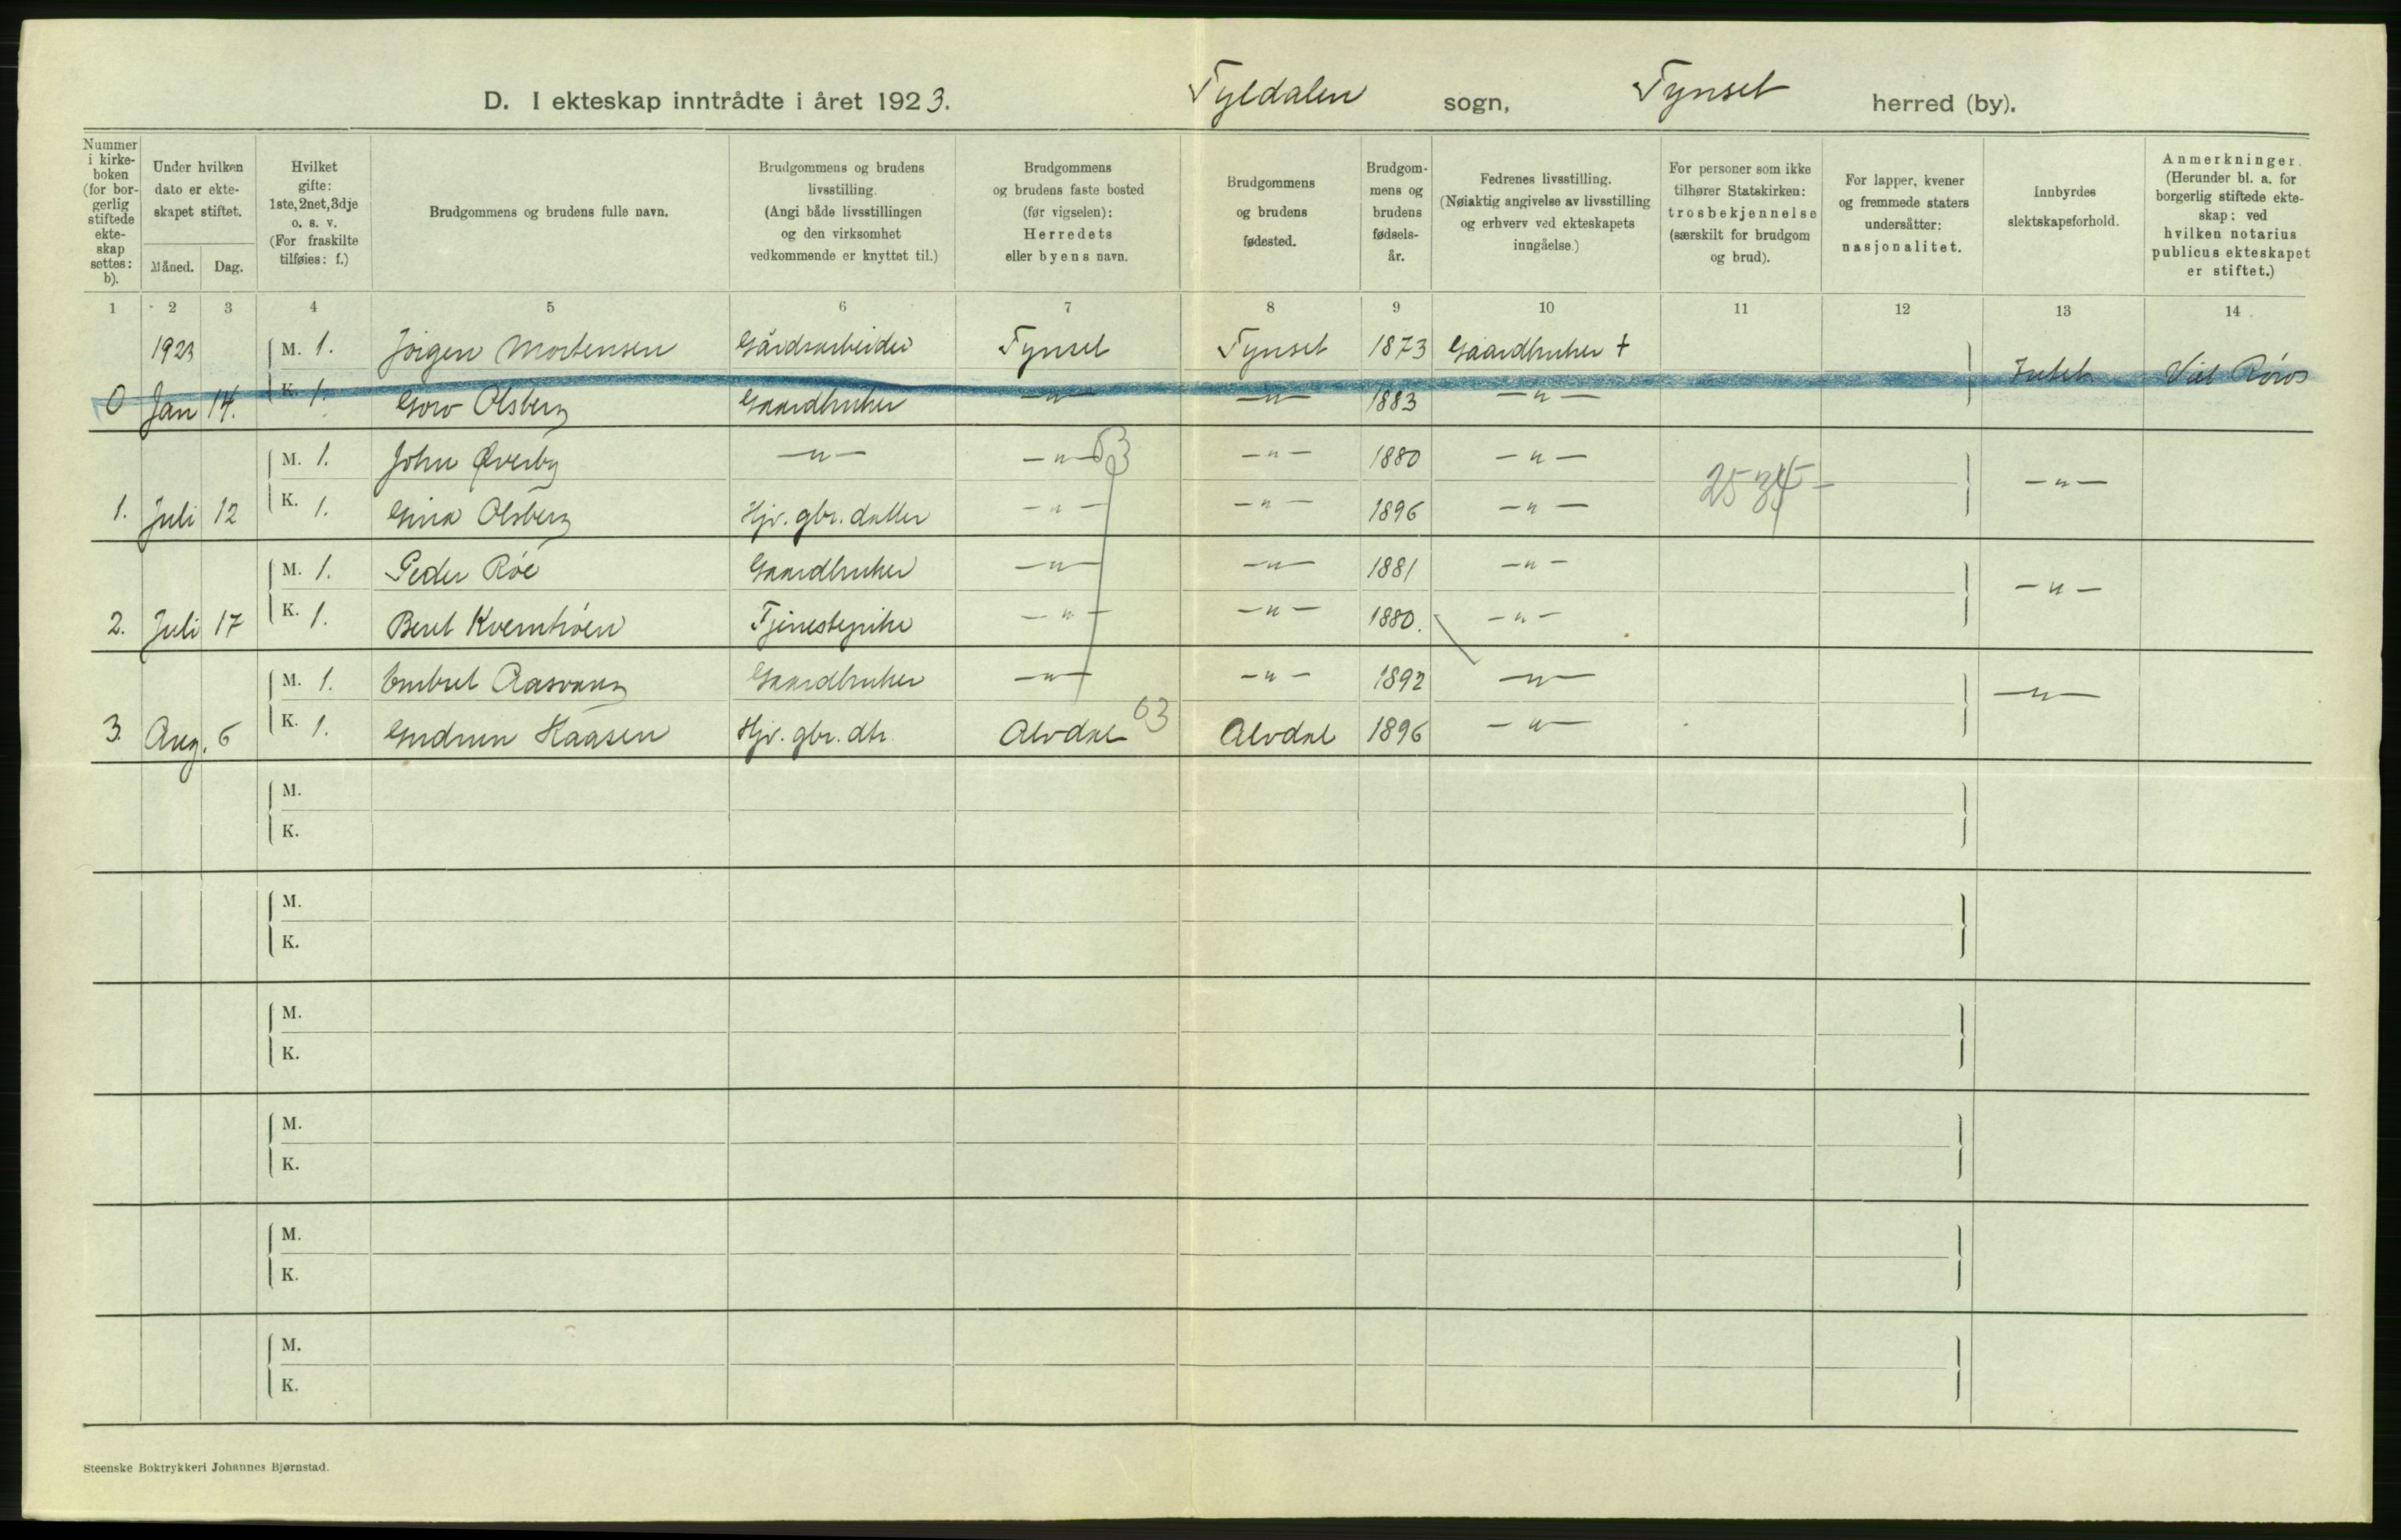 D. I ekteskap inntrådte i året 1923. Tyldalen sogn, Tynset herred (by).
Nummer i kirke-boken (for bor-gerlig stiftede ekte-skap settes: b).
Under hvilken dato er ekte-skapet stiftet.
Måned. Dag.
Hvilket gifte: 1ste, 2net, 3dje o. s. v. (For fraskilte tilføies: f.)
Brudgommens og brudens fulle navn.
Brudgommens og brudens livsstilling. (Angi både livsstillingen og den virksomhet vedkommende er knyttet til.)
Brudgommens og brudens faste bosted (før vigselen): Herredets eller byens navn.
Brudgommens og brudens fødested.
Brudgom-mens og brudens fødsels-år.
Fedrenes livsstilling. (Nøiaktig angivelse av livsstilling og erhverv ved ekteskapets inngåelse.)
For personer som ikke tilhører Statskirken: trosbekjennelse (særskilt for brudgom og brud).
For lapper, kvener og fremmede staters undersåtter: nasjonalitet.
Innbyrdes slektskapsforhold.
Anmerkninger. (Herunder bl. a. for borgerlig stiftede ekte-skap: ved hvilken notarius publicus ekteskapet er stiftet.)
1 2 3 4 5 6 7 8 9 10 11 12 13 14
1923 M. 1. Jörgen Mortensen Gårdsarbeider Tynset Tynset 1873 Gaardbruker +
0 Jan 14. K. 1. Goro Olsberg Gaardbruker —"— —"— 1883 —"— Intet Viet Röros
M. 1. John Øverby —"— —"— 63 —"— 1880 —"—
1. Juli 12 K. 1. Gina Olsberg Hjv. gbr. datter —"— —"— 1896 —"— 25 34 —"—
M. 1. Peder Röe Gaardbruker —"— —"— 1881 —"—
2. Juli 17 K. 1. Beret Kvernhöen Tjenestepike —"— —"— 1880. —"— —"—
M. 1. Embret Aasvang Gaardbruker —"— —"— 1892 —"—
3. Aug. 6 K. 1. Gudrun Haasen Hjv. gbr. dtr. Alvdal 63 Alvdal 1896 —"— —"—
M.
K.
M.
K.
M.
K.
M.
K.
M.
K.
M.
K.
Steenske Boktrykkeri Johannes Bjørnstad.